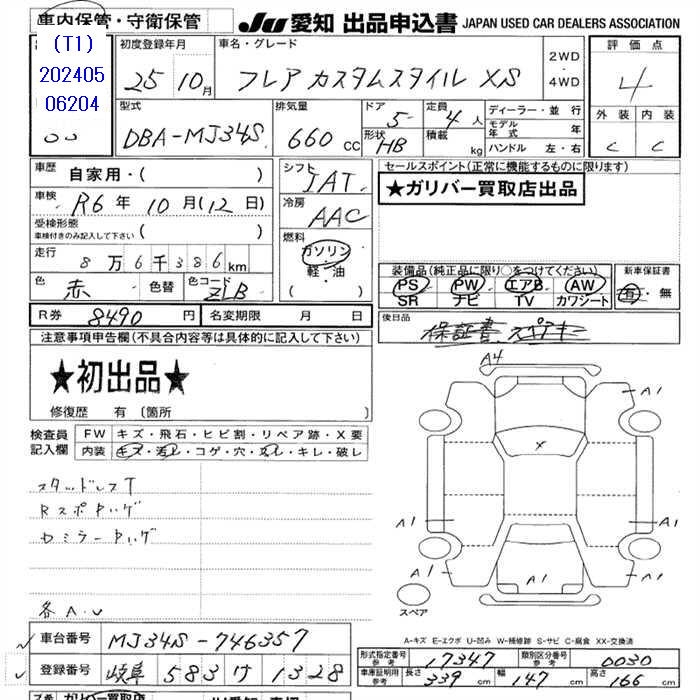 車内保管・守衛保管
JU 愛知 出品申込書 JAPAN USED CAR DEALERS ASSOCIATION
(T1)
202405
06204
初度登録年月 車名・グレード
25 10月 フレア カスタムスタイル XS 2WD・4WD
評価点
4
型式 排気量 ドア 定員 ディーラー・並行
DBA-MJ34S 660cc 5 4人 モデル年式 年
形状 HB 積載 kg ハンドル 左・右
外装 内装
C C
車歴 自家用・( )
シフト IAT
セールスポイント(正常に機能するものに限ります)
★ガリバー買取店出品
車検 R6年10月(12日)
冷房 AAC
受検形態
車検付きのみ記入して下さい ( )
燃料 ガソリン・軽・油 ( )
走行 8万6千386km
装備品(純正品に限り○をつけてください) 新車保証書
PS PW エアB AW 有・無
SR ナビ TV カワシート
色 赤 色替 色コード ZLB
R券 8490円 名変期限 月 日
後日品 保証書、スペアキー
注意事項申告欄(不具合内容等は具体的に記入して下さい)
★初出品★
修復歴 有 〔箇所 〕
検査員記入欄 FW キズ・飛石・ヒビ割・リペア跡・X要
内装 キズ・汚レ・コゲ・穴・スレ・キレ・破レ
スタッドレスT
Rスポキズ
各A・U
A4
A1
X
A1 A1
A1 A1 A1
スペア
A-キズ E-エクボ U-凹み W-補修跡 S-サビ C-腐食 XX-交換済
車台番号 MJ34S-746357
形式指定番号 参考 17347 類別区分番号 参考 0030
登録番号 岐阜 583 け 1328
車庫証明用 参考 長さ 339cm 幅 147cm 高さ 166cm
ガリバー買取店